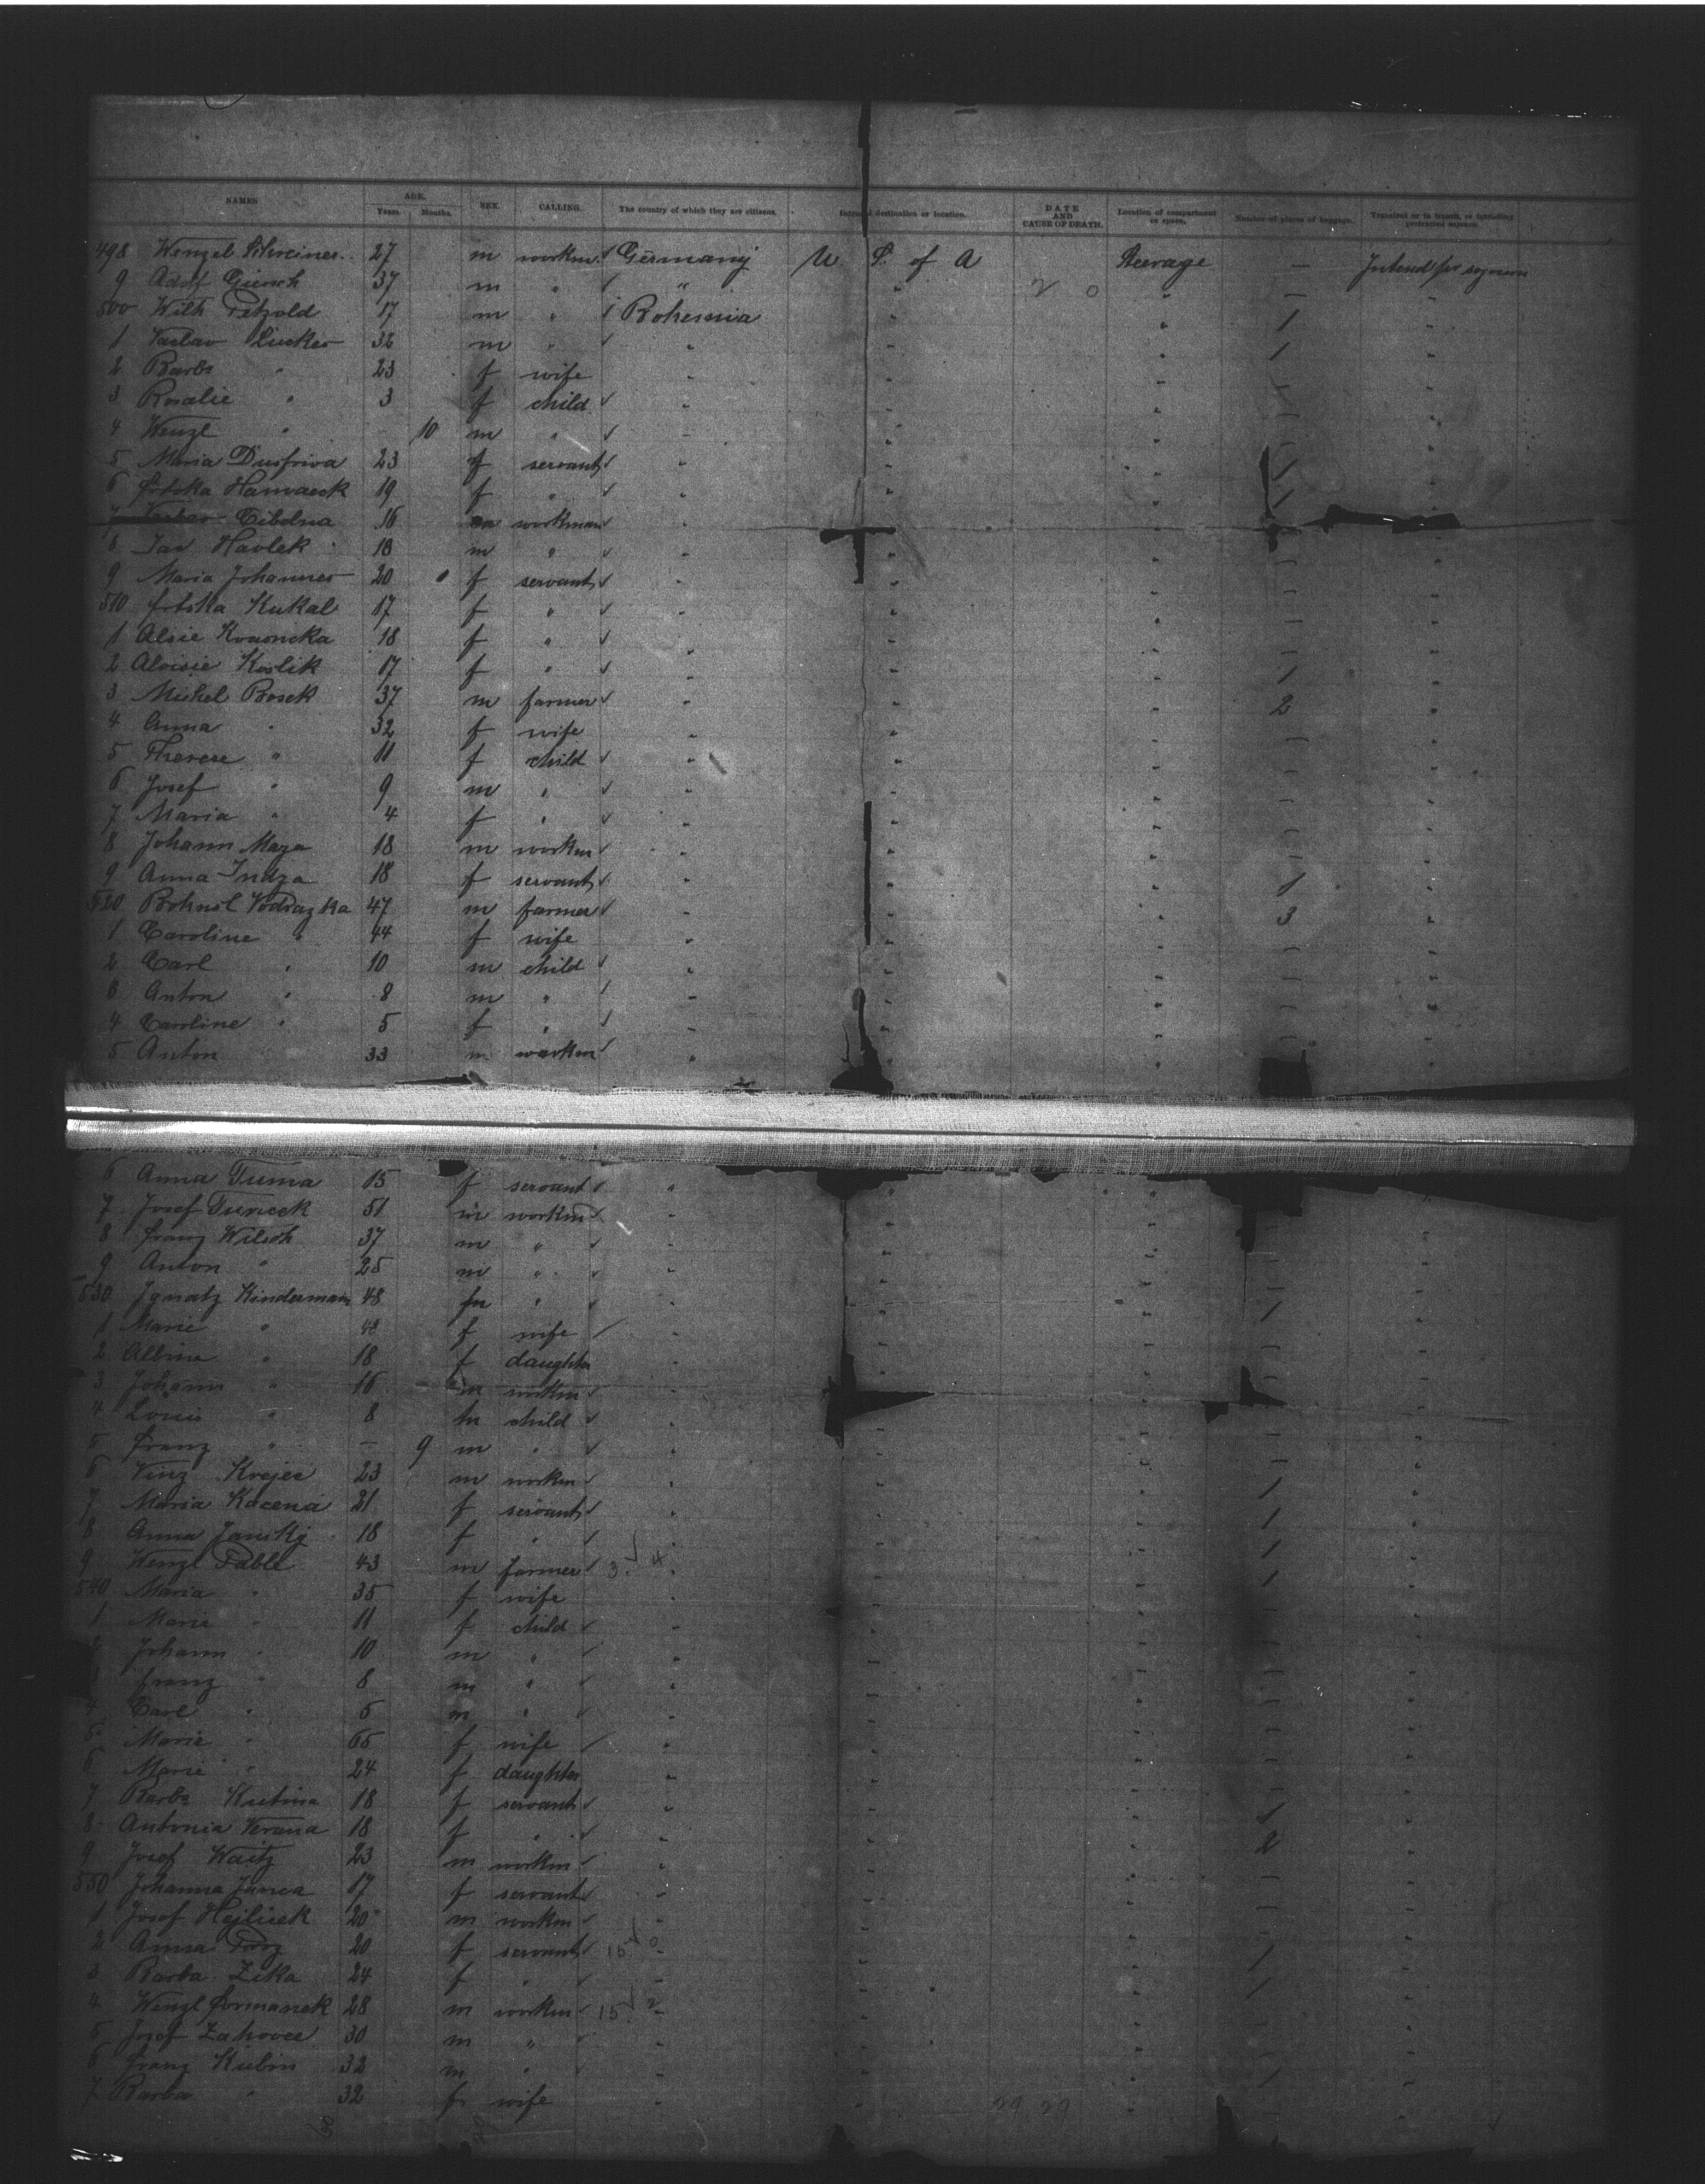 NAMES AGE. SEX. CALLING. The country of which they are citizens. Intended destination or location. DATE AND CAUSE OF DEATH. Location of compartment or space. Number of pieces of baggage. Transient or in transit, or intending protracted sojourn.
Years. Months.
498 Wenzel Schreiner 27 m workm. Germany U. S. of A Steerage — Intend for sojourn
9 Adolf Giersch 37 m " " " 2 0 " — "
500 Wilh Petzold 17 m " Bohemia " " 1 "
1 Vaclav 32 m " " " " 1 "
2 Barba " 23 f wife " " " — "
3 Rosalie " 3 f child " " " — "
4 Wenzl " 10 m " " " " — "
5 Maria 23 f servant " " " 1 "
6 19 f " " " " 1 "
7 Cibolna 16 m workman " " "
8 Jan Havlek 18 m " " " " — "
9 Maria Johannes 20 f servant " " " — "
510 Kukal 17 f " " " " — "
1 18 f " " " " — "
2 Aloisie Koslik 17 f " " " " 1 "
3 Michel Bosek 37 m farmer " " " 2 "
4 Anna " 32 f wife " " " — "
5 Therese " 11 f child " " " — "
6 Josef " 9 m " " " " — "
7 Maria " 4 f " " " " — "
8 Johann Maza 18 m workm " " " — "
9 Anna Indza 18 f servant " " " 1 "
520 Vodrazka 47 m farmer " " " 3 "
1 Caroline " 44 f wife " " " — "
2 Carl " 10 m child " " " — "
3 Anton " 8 m " " " " — "
4 Caroline " 5 f " " " " — "
5 Anton 33 m workm " " " "
6 Anna Tuma 15 f servant " " " "
7 Josef Turicek 51 m workm " " " — "
8 Franz Wilsch 37 m " " " " — "
9 Anton " 25 m " " " " — "
530 Ignatz Kindermann 48 m " " " " 1 "
1 Marie " 48 f wife " " " — "
2 Albina " 18 f daughter " " " — "
3 Johann " 16 m workm " " " "
4 Louis " 8 m child " " " — "
5 Franz " — 9 m " " " " — "
6 Vinz Krejci 23 m workm " " " 1 "
7 Maria Kacena 21 f servant " " " 1 "
8 Anna Jansky 18 f " " " " 1 "
9 Wenzl Pable 43 m farmer 3 4 " " " 1 "
540 Maria " 35 f wife " " " — "
1 Marie " 11 f child " " " — "
2 Johann " 10 m " " " " — "
Franz " 8 m " " " " — "
4 Carl " 5 m " " " " — "
5 Marie " 65 f wife " " " — "
6 Marie " 24 f daughter " " " — "
7 Barba Kutina 18 f servant " " " 1 "
8 Antonia Verana 18 f " " " " 2 "
9 Josef Waitz 23 m workm " " " — "
550 Johanna Janca 17 f servant " " " — "
1 Josef Hejlicek 20 m workm " " " — "
2 Anna 20 f servant 15 0 " " " 1 "
3 Barba Zika 24 f " " " " 1 "
4 Wenzl Formanek 28 m workm 15 2 " " " — "
5 Josef Zahovec 30 m " " " " — "
6 Franz Kubin 32 m " " " " 1 "
7 Barba " 32 f wife " " 29 29 " — "